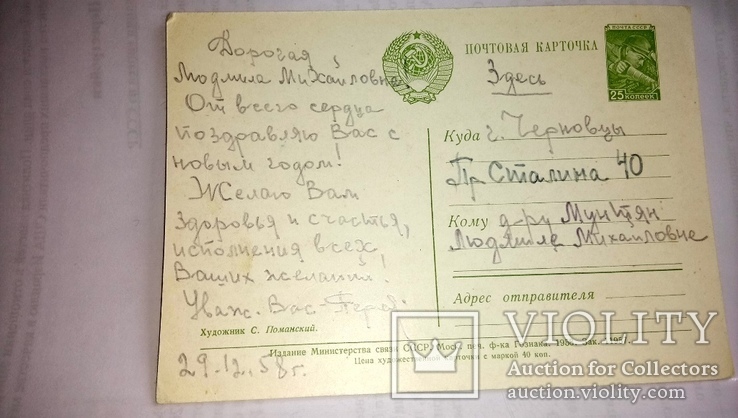 Дорогая
Людмила Михайловна
От всего сердца
поздравляю Вас с
новым годом!
Желаю Вам
здоровья и счастья,
исполнения всех
Ваших желаний!
Уваж. Вас
Художник С. Поманский.
29.12.58г.
ПОЧТОВАЯ КАРТОЧКА
Здесь
ПОЧТА СССР
25 КОПЕЕК
Куда г. Черновцы
Пр Сталина 40
Кому д-ру Мунтян
Людмиле Михайловне
Адрес отправителя
Издание Министерства связи СССР. Моск. печ. ф-ка Гознака. 195
Цена художественной карточки с маркой 40 коп.
VIOLITY
Auction for Collectors
auction.violity.com